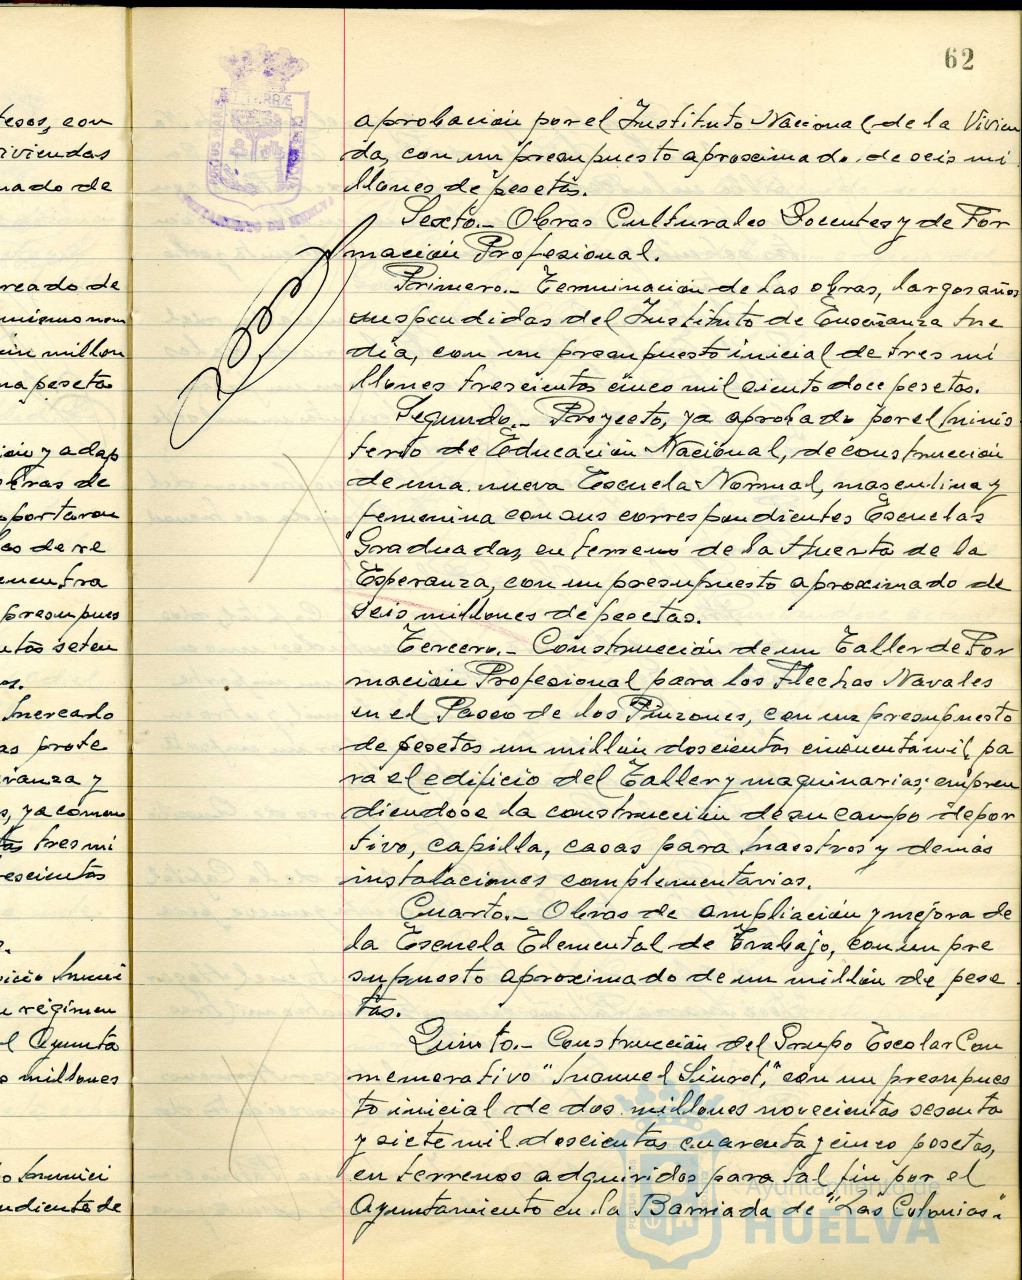 62
tesos, con
viviendas
mado de
ercado de
mismo nom
un millon
na peseta
ción y adap
obras de
portaron
las de re
encuentra
presupues
ntas seten
as.
Mercado
as prote
ranza y
s, ya comen
tas tres mi
rescientas
icio Muni
n régimen
l Ayunta
o millones
o Munici
ndiente de
aprobación por el Instituto Nacional de la Vivien
da, con un presupuesto aproximado de seis mi
llones de pesetas.
Sexto.- Obras Culturales Docentes y de For
mación Profesional.
Primero.- Terminación de las obras, largos años
suspendidas del Instituto de Enseñanza Me
dia, con un presupuesto inicial de tres mi
llones trescientas cinco mil ciento doce pesetas.
Segundo.- Proyecto, ya aprobado por el Minis
terio de Educación Nacional, de construcción
de una nueva Escuela Normal, masculina y
femenina con sus correspondientes Escuelas
Graduadas, en terreno de la Huerta de la
Esperanza, con un presupuesto aproximado de
seis millones de pesetas.
Tercero.- Construcción de un Taller de For
mación Profesional para los Flechas Navales
en el Paseo de los Pinzones, con un presupuesto
de pesetas un millón doscientas cincuenta mil pa
ra el edificio del Taller y maquinarias; empren
diendose la construcción de su campo depor
tivo, capilla, casas para Maestros y demás
instalaciones complementarias.
Cuarto.- Obras de ampliación y mejora de
la Escuela Elemental de Trabajo, con un pre
supuesto aproximado de un millón de pese
tas.
Quinto.- Construcción del Grupo Escolar Con
memorativo "Manuel Siurot," con un presupues
to inicial de dos millones novecientas sesenta
y siete mil doscientas cuarenta y cinco pesetas,
en terrenos adquiridos para tal fin por el
Ayuntamiento en la Barriada de "Las Colonias".
Ayuntamiento de
HUELVA